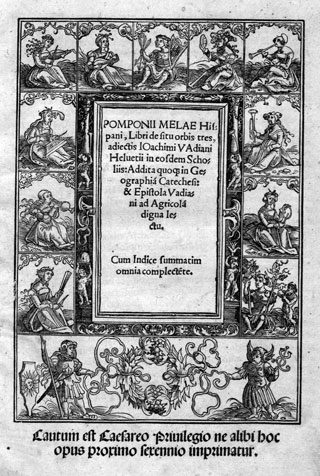 POMPONII MELAE His
pani, Libri de situ orbis tres,
adiectis Ioachimi VAdiani
Heluetii in eosdem Scho
liis: Addita quoq; in Ge
ographiā Catechesi:
& Epistola Vadia
ni ad Agricolā
digna le
ctu.
Cum Indice summatim
omnia complectēte.
Cautum est Caesareo Priuilegio ne alibi hoc
opus proximo sexennio imprimatur.